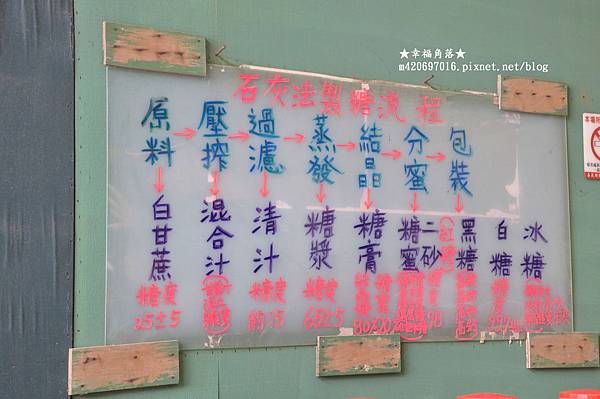 ★幸福角落★
m420697016.pixnet.net/blog
石灰法製糖流程
原料→壓搾→過濾→蒸發→結晶→分蜜→包裝
白甘蔗
糖度
25±5
混合汁
清汁
糖度
約15
糖漿
糖度
65±5
糖膏
80±20
糖蜜
二砂
糖度
98
紅糖
黑糖
白糖
糖度
冰糖